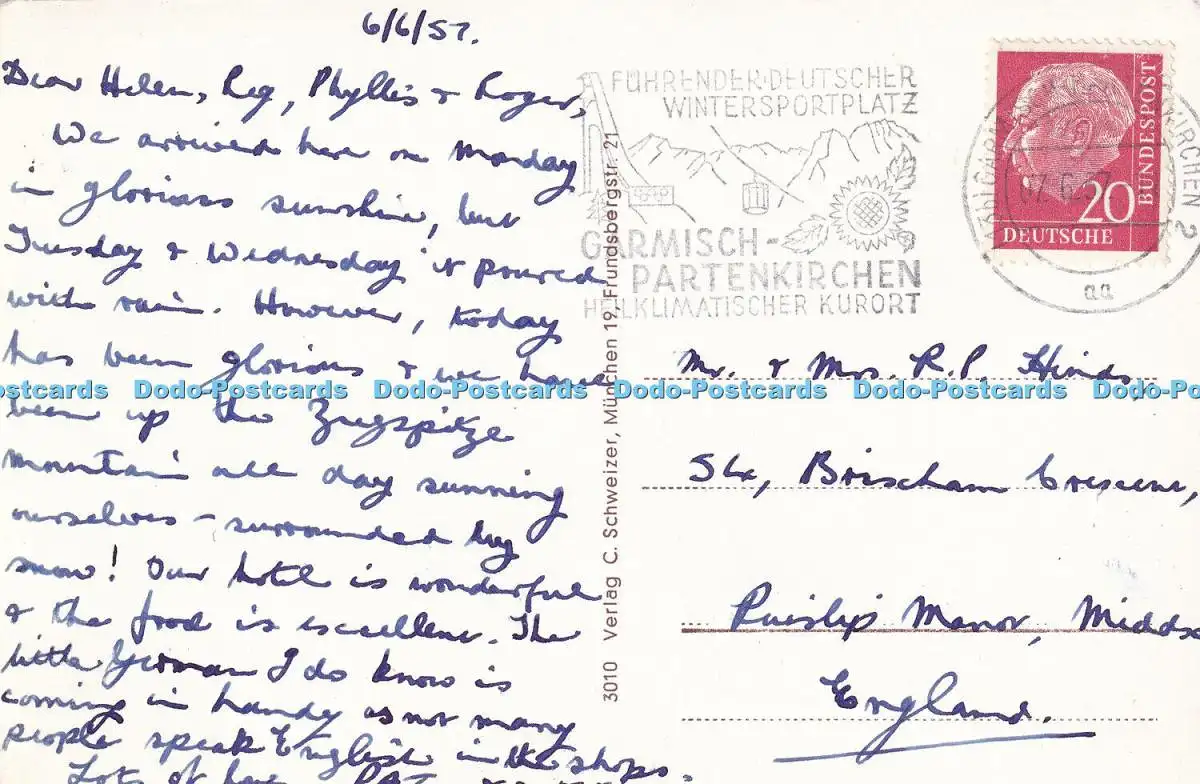 6/6/57.
Dear Helen, Reg, Phyllis & Roger,
We arrived here on Monday
in glorious sunshine, but
Tuesday & Wednesday it poured
with rain. However, today
has been glorious & we have
been up the Zugspitze
mountain all day sunning
ourselves – surrounded by
snow! Our hotel is wonderful
& the food is excellent. The
little German I do know is
coming in handy as not many
people speak English in the shops.
Lots of love, PAT
3010 Verlag C. Schweizer, München 19, Frundsbergstr. 21
FÜHRENDER DEUTSCHER
WINTERSPORTPLATZ
GARMISCH-
PARTENKIRCHEN
HEILKLIMATISCHER KURORT
20
DEUTSCHE
BUNDESPOST
2
aa
Mr. & Mrs. R.P. Hinds,
Brixham Crescent,
Ruislip Manor, Middx
England.
Postcards Dodo-Postcards Dodo-Postcards Dodo-Postcards Dodo-Postcards Dodo-Po